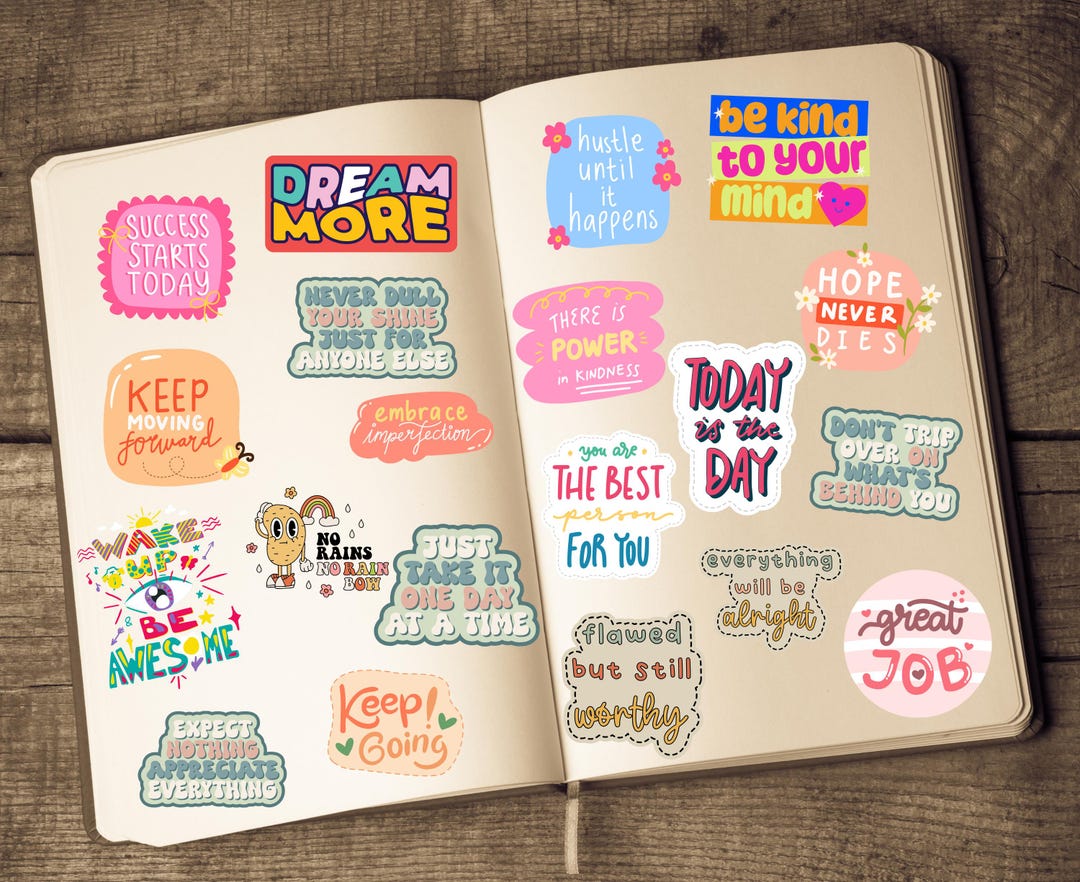 SUCCESS
STARTS
TODAY
DREAM
MORE
NEVER DULL
YOUR SHINE
JUST FOR
ANYONE ELSE
KEEP
MOVING
forward
embrace
imperfection
WAKE
UP
&
BE
AWESOME
NO
RAINS
NO RAIN
BOW
JUST
TAKE IT
ONE DAY
AT A TIME
Keep!
Going
EXPECT
NOTHING
APPRECIATE
EVERYTHING
hustle
until
it
happens
be kind
to your
mind
THERE IS
POWER
in KINDNESS
HOPE
NEVER
DIES
TODAY
is the
DAY
DON'T TRIP
OVER ON
WHAT'S
BEHIND YOU
you are
THE BEST
person
FOR YOU
everything
will be
alright
flawed
but still
worthy
great
JOB